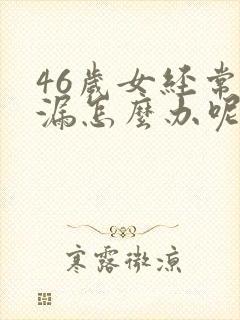 46歲女經常
漏怎麼办呢
寒露微凉